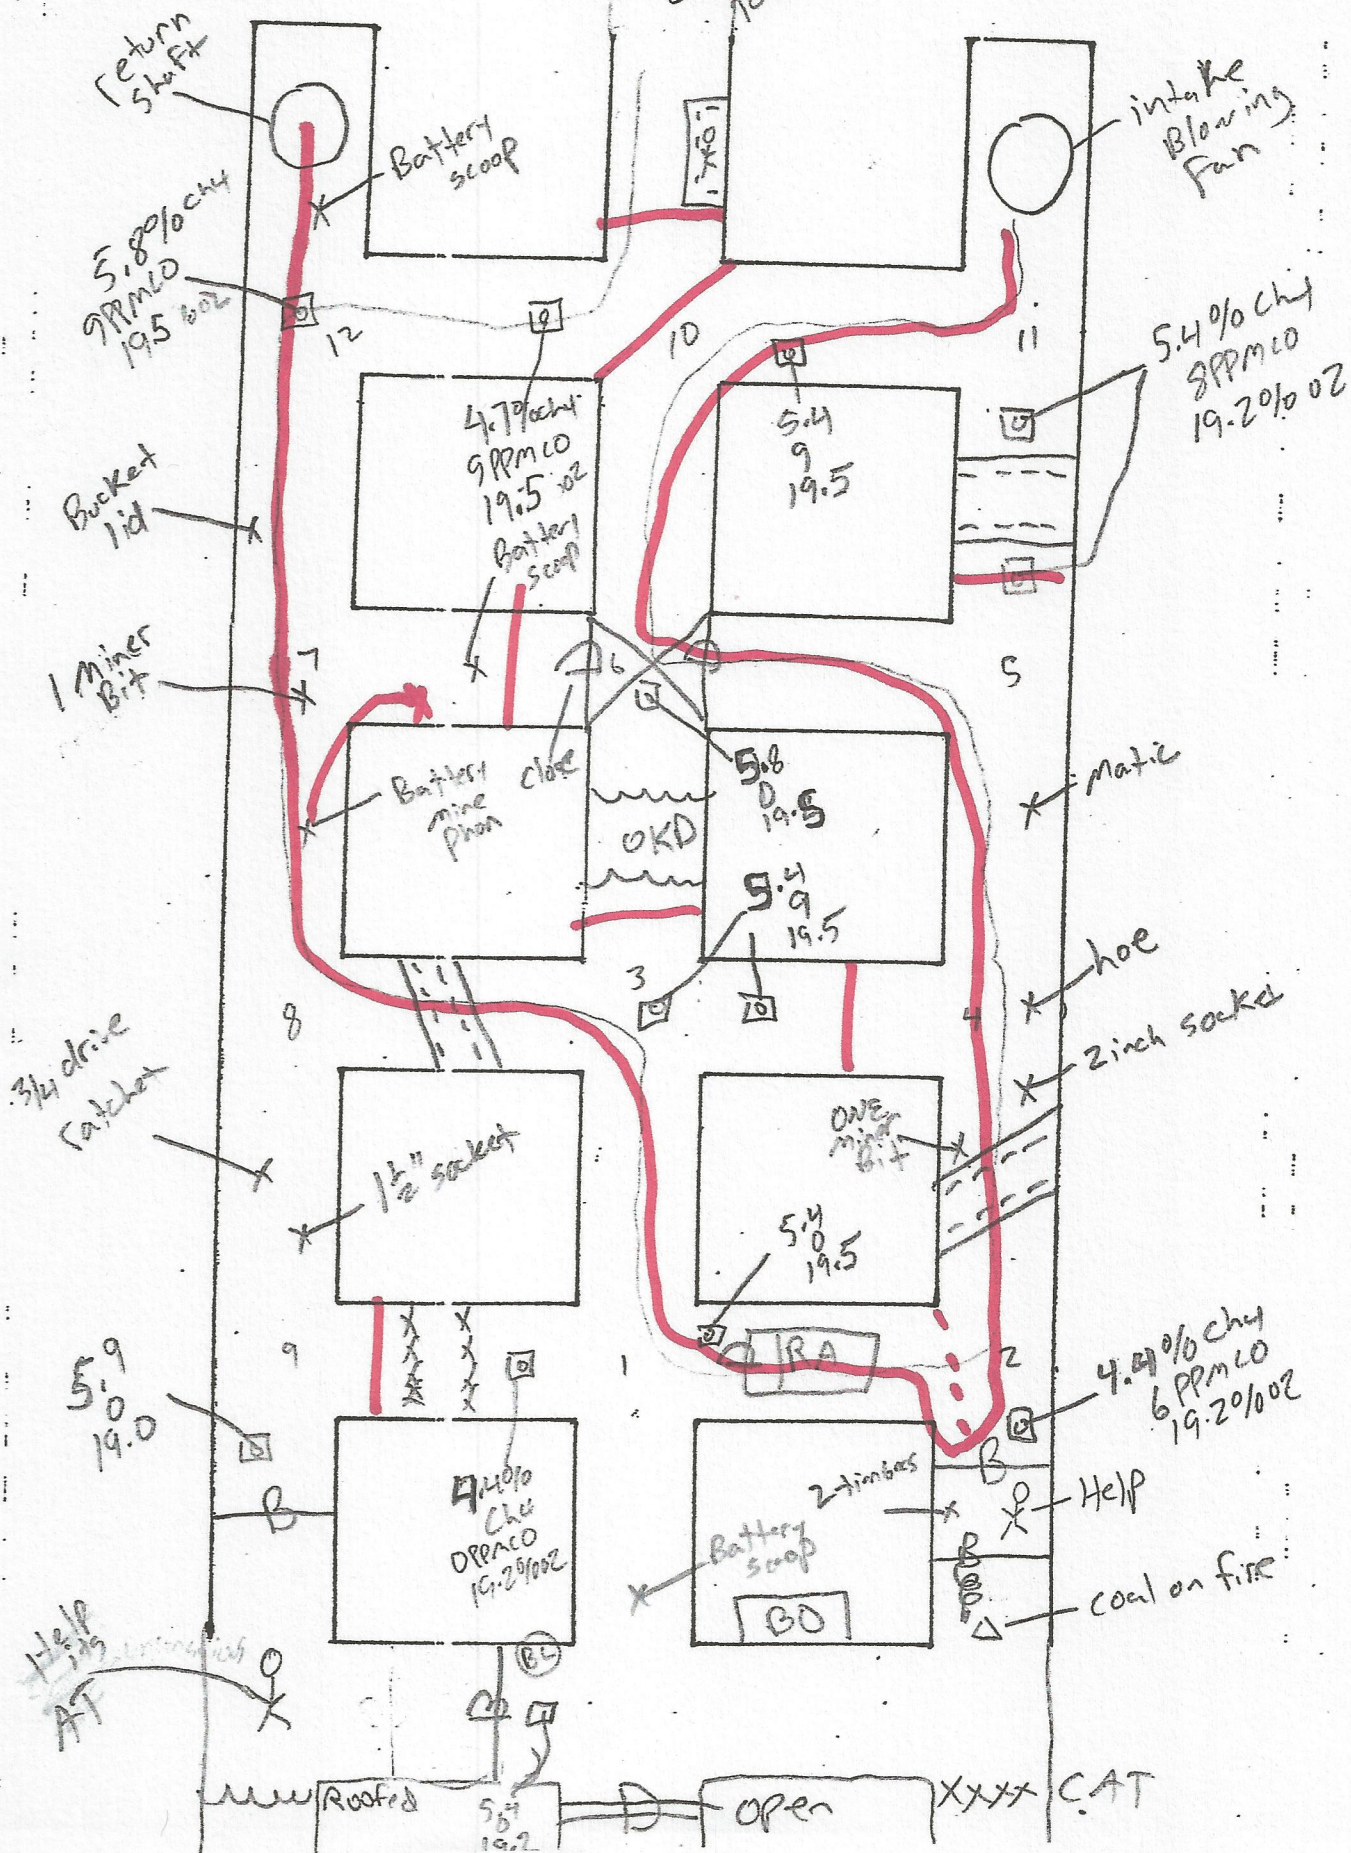 return
shaft
Battery
scoop
intake
Blowing
Fan
5.8% CH4
9PPMCO
19.5 %02
12
10
11
5.4% CH4
8PPMCO
19.2% 02
4.7% CH4
9PPMCO
19.5 %02
Battery
scoop
5.4
9
19.5
Bucket
lid
1 Miner
Bit
7
6
5
close
Battery
mine
phon
OKD
5.8
0
19.5
5.4
9
19.5
Matic
3
4
8
hoe
2 inch socket
3/4 drive
ratchet
1 1/2" socket
ONE
Miner
Bit
5.4
0
19.5
9
1
RA
2
5.9
0
19.0
4.4% CH4
6 PPMCO
19.2%02
B
4.4%
CH4
0PPMCO
19.2%02
2-timbers
B
Help
Battery
scoop
B
coal on fire
BO
Help
AT
BL
Roofed
5.4
0
19.2
D
open
XXXX CAT